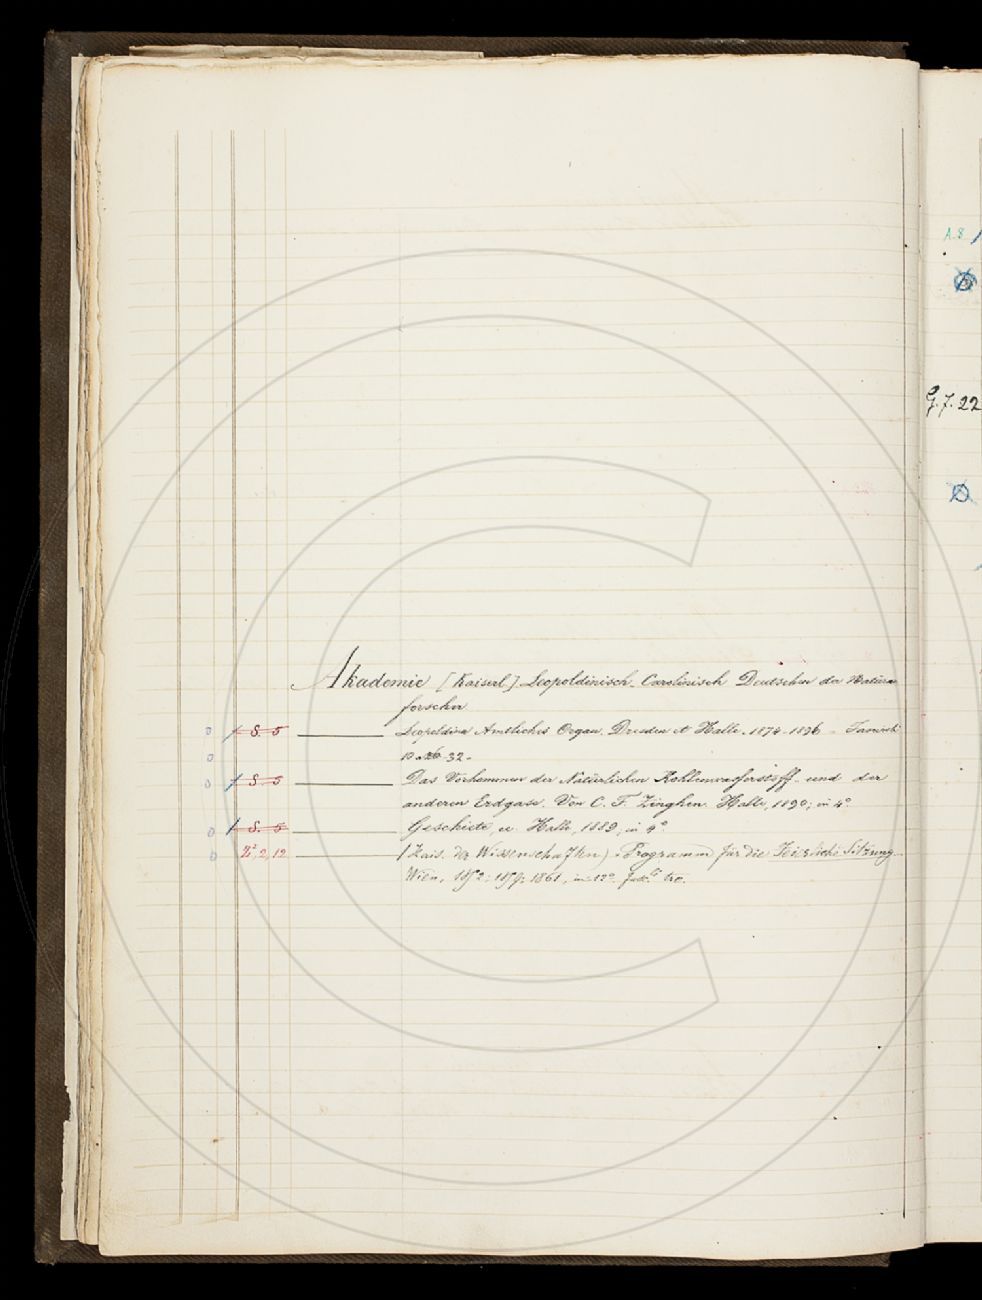 Akademie [Kaiserl.] Leopoldinisch-Carolinisch Deutschen der Natur-
forscher
S. 5 Leopoldina Amtliches Organ. Dresden et Halle. 1874-1896
32.
S 5 Das Vorkommen der Natürlichen Kohlenwasserstoff- und der
anderen Erdgase. Von C. F. Zinghen. Halle, 1890; in 4°
S. 5 Geschicte, u. Halle, 1889, in 4°
2, 12 (Kais. der Wissenschaften). Programm für die Sitzung
Wien, 1861, in 12°.
A. 8
G. 7. 22